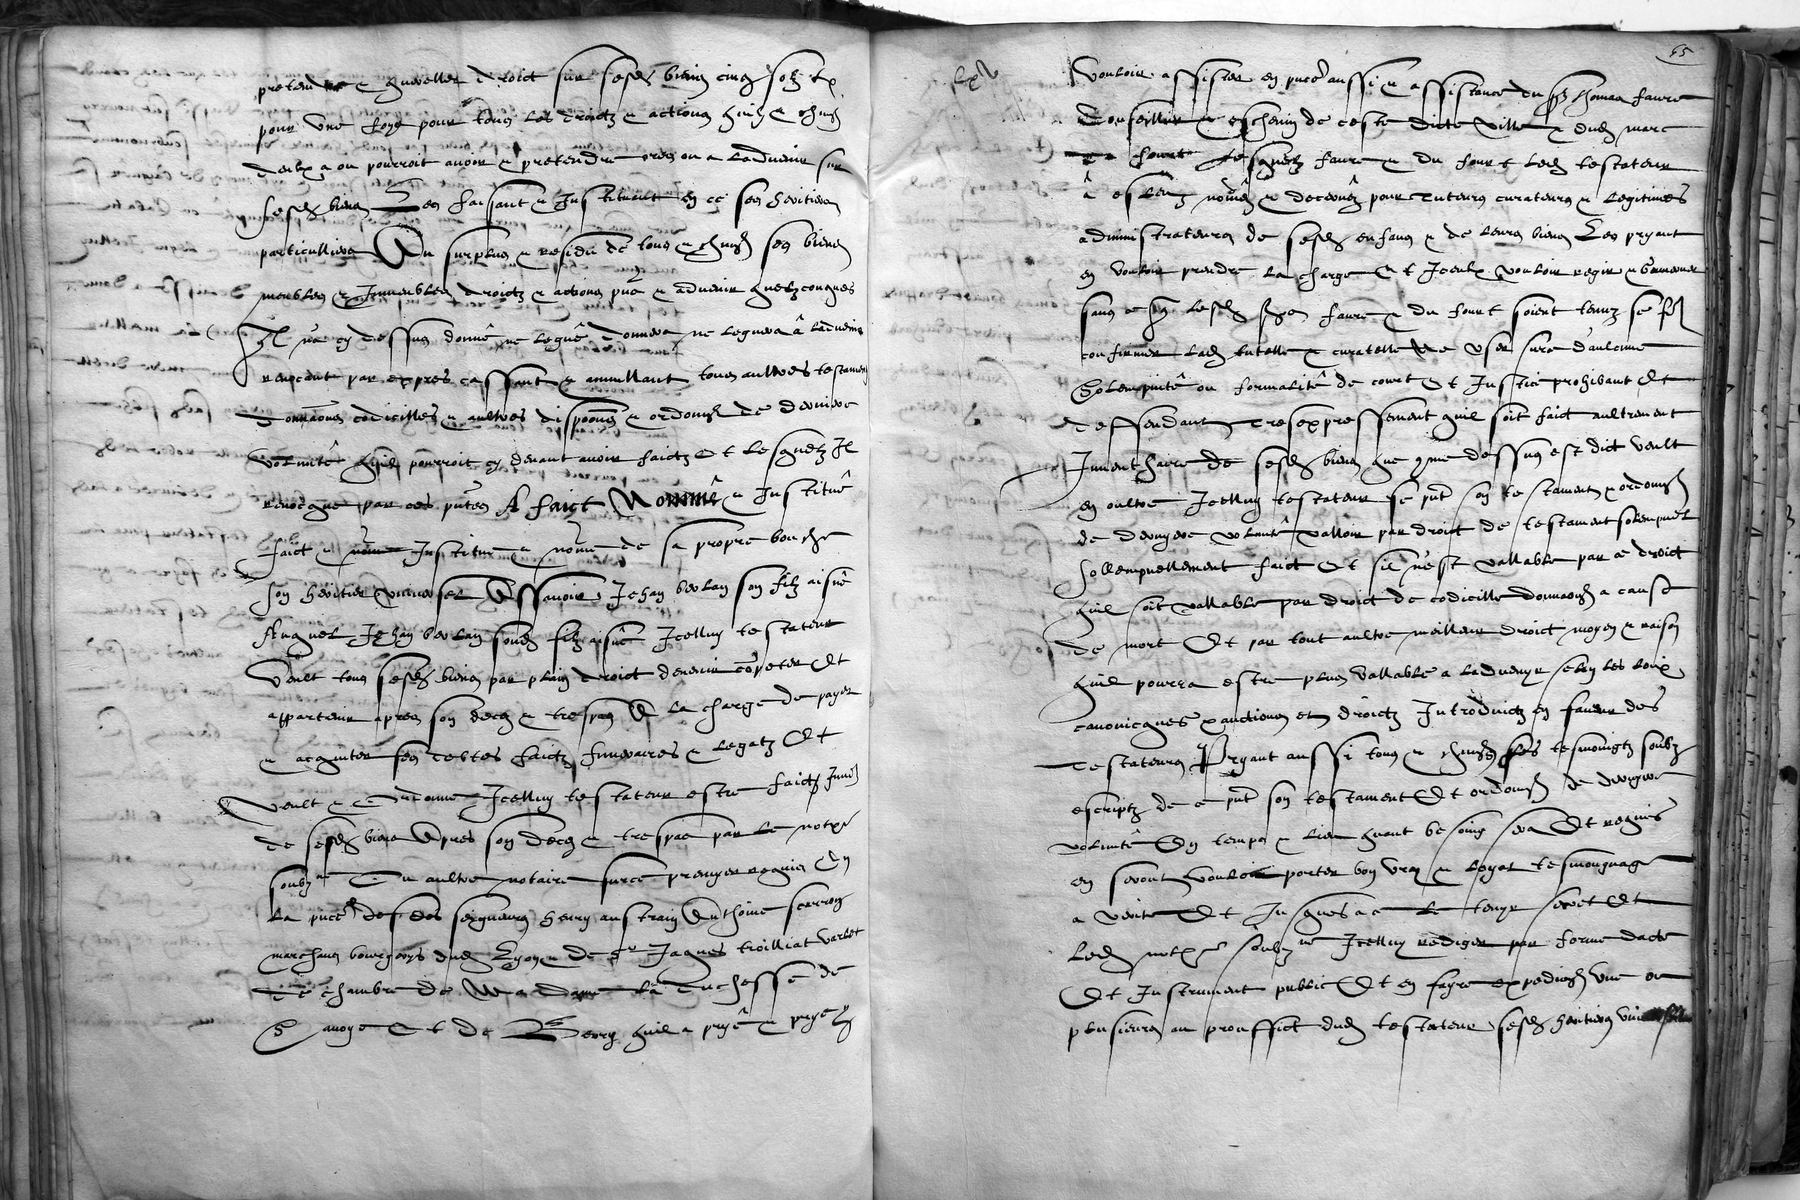 pretendre & quereller droict sur sesd biens cinq solz tz
pour une foys pour tous les droictz & actions quilz & chung
deulx a ou pourroit avoir & pretendre ores ou a ladvenir sur
sesd biens Les faisant & Instituant en ce ses heritiers
particulliers Au surplus & residu de tous & chungs ses biens
meubles & Immeubles droictz & actions pns & advenir quelzconques
Il na cy dessus donné ne legué donnera ne leguera à ladvenir
revocant par expres cassant & annullant tous aultres testamens
donnaons codicilles & aultres disponons & ordonns de derniere
volunté quil pourroit cy devant avoir faictz Et lesquelz Il
revocque par ces pntes A faict Nommé & Institué
faict & nomme Institue & nomme de sa propre bouche
son heritier universel Assavoir Jehan verlan son filz aisné
Auquel Jehan verlan sond filz aisné Icelluy testateur
Veult tous sesd biens par plain droict devenir competer Et
appartenir apres son deces & trespas A la charge de payer
& acquiter ses debtes faictz funeraires & legatz Et
Veult & Ordonne Icelluy testateur estre faict Invre
de sesd biens Apres son deces & trespas par le notre
soubzne Ou aultre notaire surce premyer requis En
la pnce desds seigneurs henry austrain Anthoine scarron
marchans bourgeoys dud Lyon & de sr Jaques troilliat varlet
de chambre de Madame la duchesse de
Savoye Et de Berry quil a pryé & prye
65
lxv
Vouloir assister en pnce aussi & assistance du sr thomas faure
Conseiller & eschevin de ceste dicte ville & dud marc
du fourt lesquelz faure & du fourt led testateur
à esleuz nommez & decernez pour tuteurs curateurs & legitimes
administrateurs de sesd enfans & de leurs biens Les pryant
en vouloir prendre la charge Et Iceulx vouloir regir & gouverner
sans ce que lesd srs faure & du fourt soient tenuz se fe
confirmer lad tutelle & curatelle Ne user surce daulcune
Solempnité ou formalité de court Et Justice prohibant Et
deffendant Tresexpressement quil soit faict aultrement
Inventhaire de sesd biens que comme dessus est dict veult
en oultre Icelluy testateur ce pnt son testament & ordonn
de dernyere volunté valloir par droict de testament solempnel
sollempnellement faict Et sil nest vallable par ce droict
quil soit vallable par droict de codicille donnaon a cause
de mort Et par tout aultre meilleur droict moyen & raison
quil pourra estre plus vallable a ladvenyr selon les loix
canonicques sanctions et droictz Introduictz en faveur des
testateurs Pryant aussi tous & chungs les tesmoingtz soubz
escriptz de ce pnt son testament Et ordonn de dernyere
volunté En temps & lieu quant besoing sera Et requis
en seront vouloir porter bon vray & loyal tesmoignage
a verite Et Jusques a ce le tenyr secret Et
led notre soubzne Icelluy rediger par forme dacte
Et Instrument public Et en fayre expedions une ou
plusieurs au prouffict dud testateur sesd heritiers